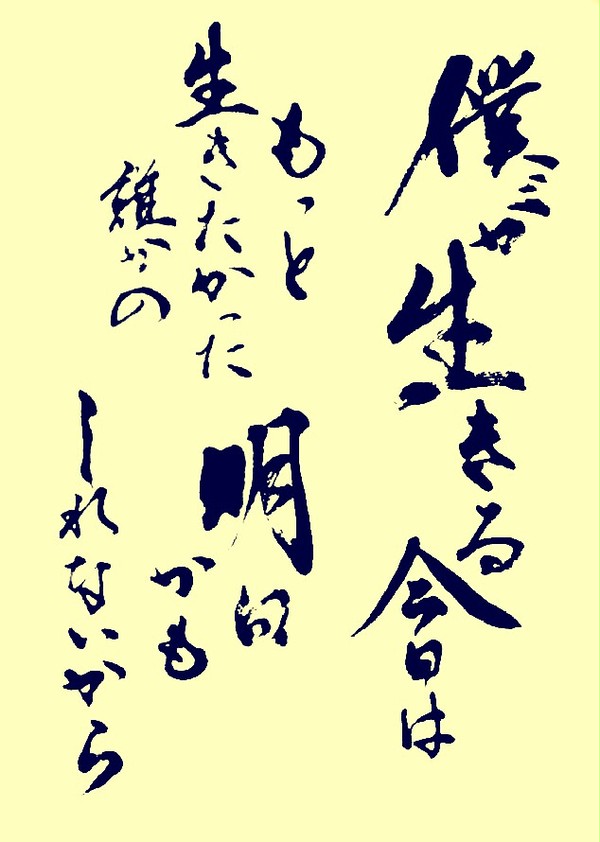 僕が生きる今日は
もっと
生きたかった
誰かの
明日
かも
しれないから